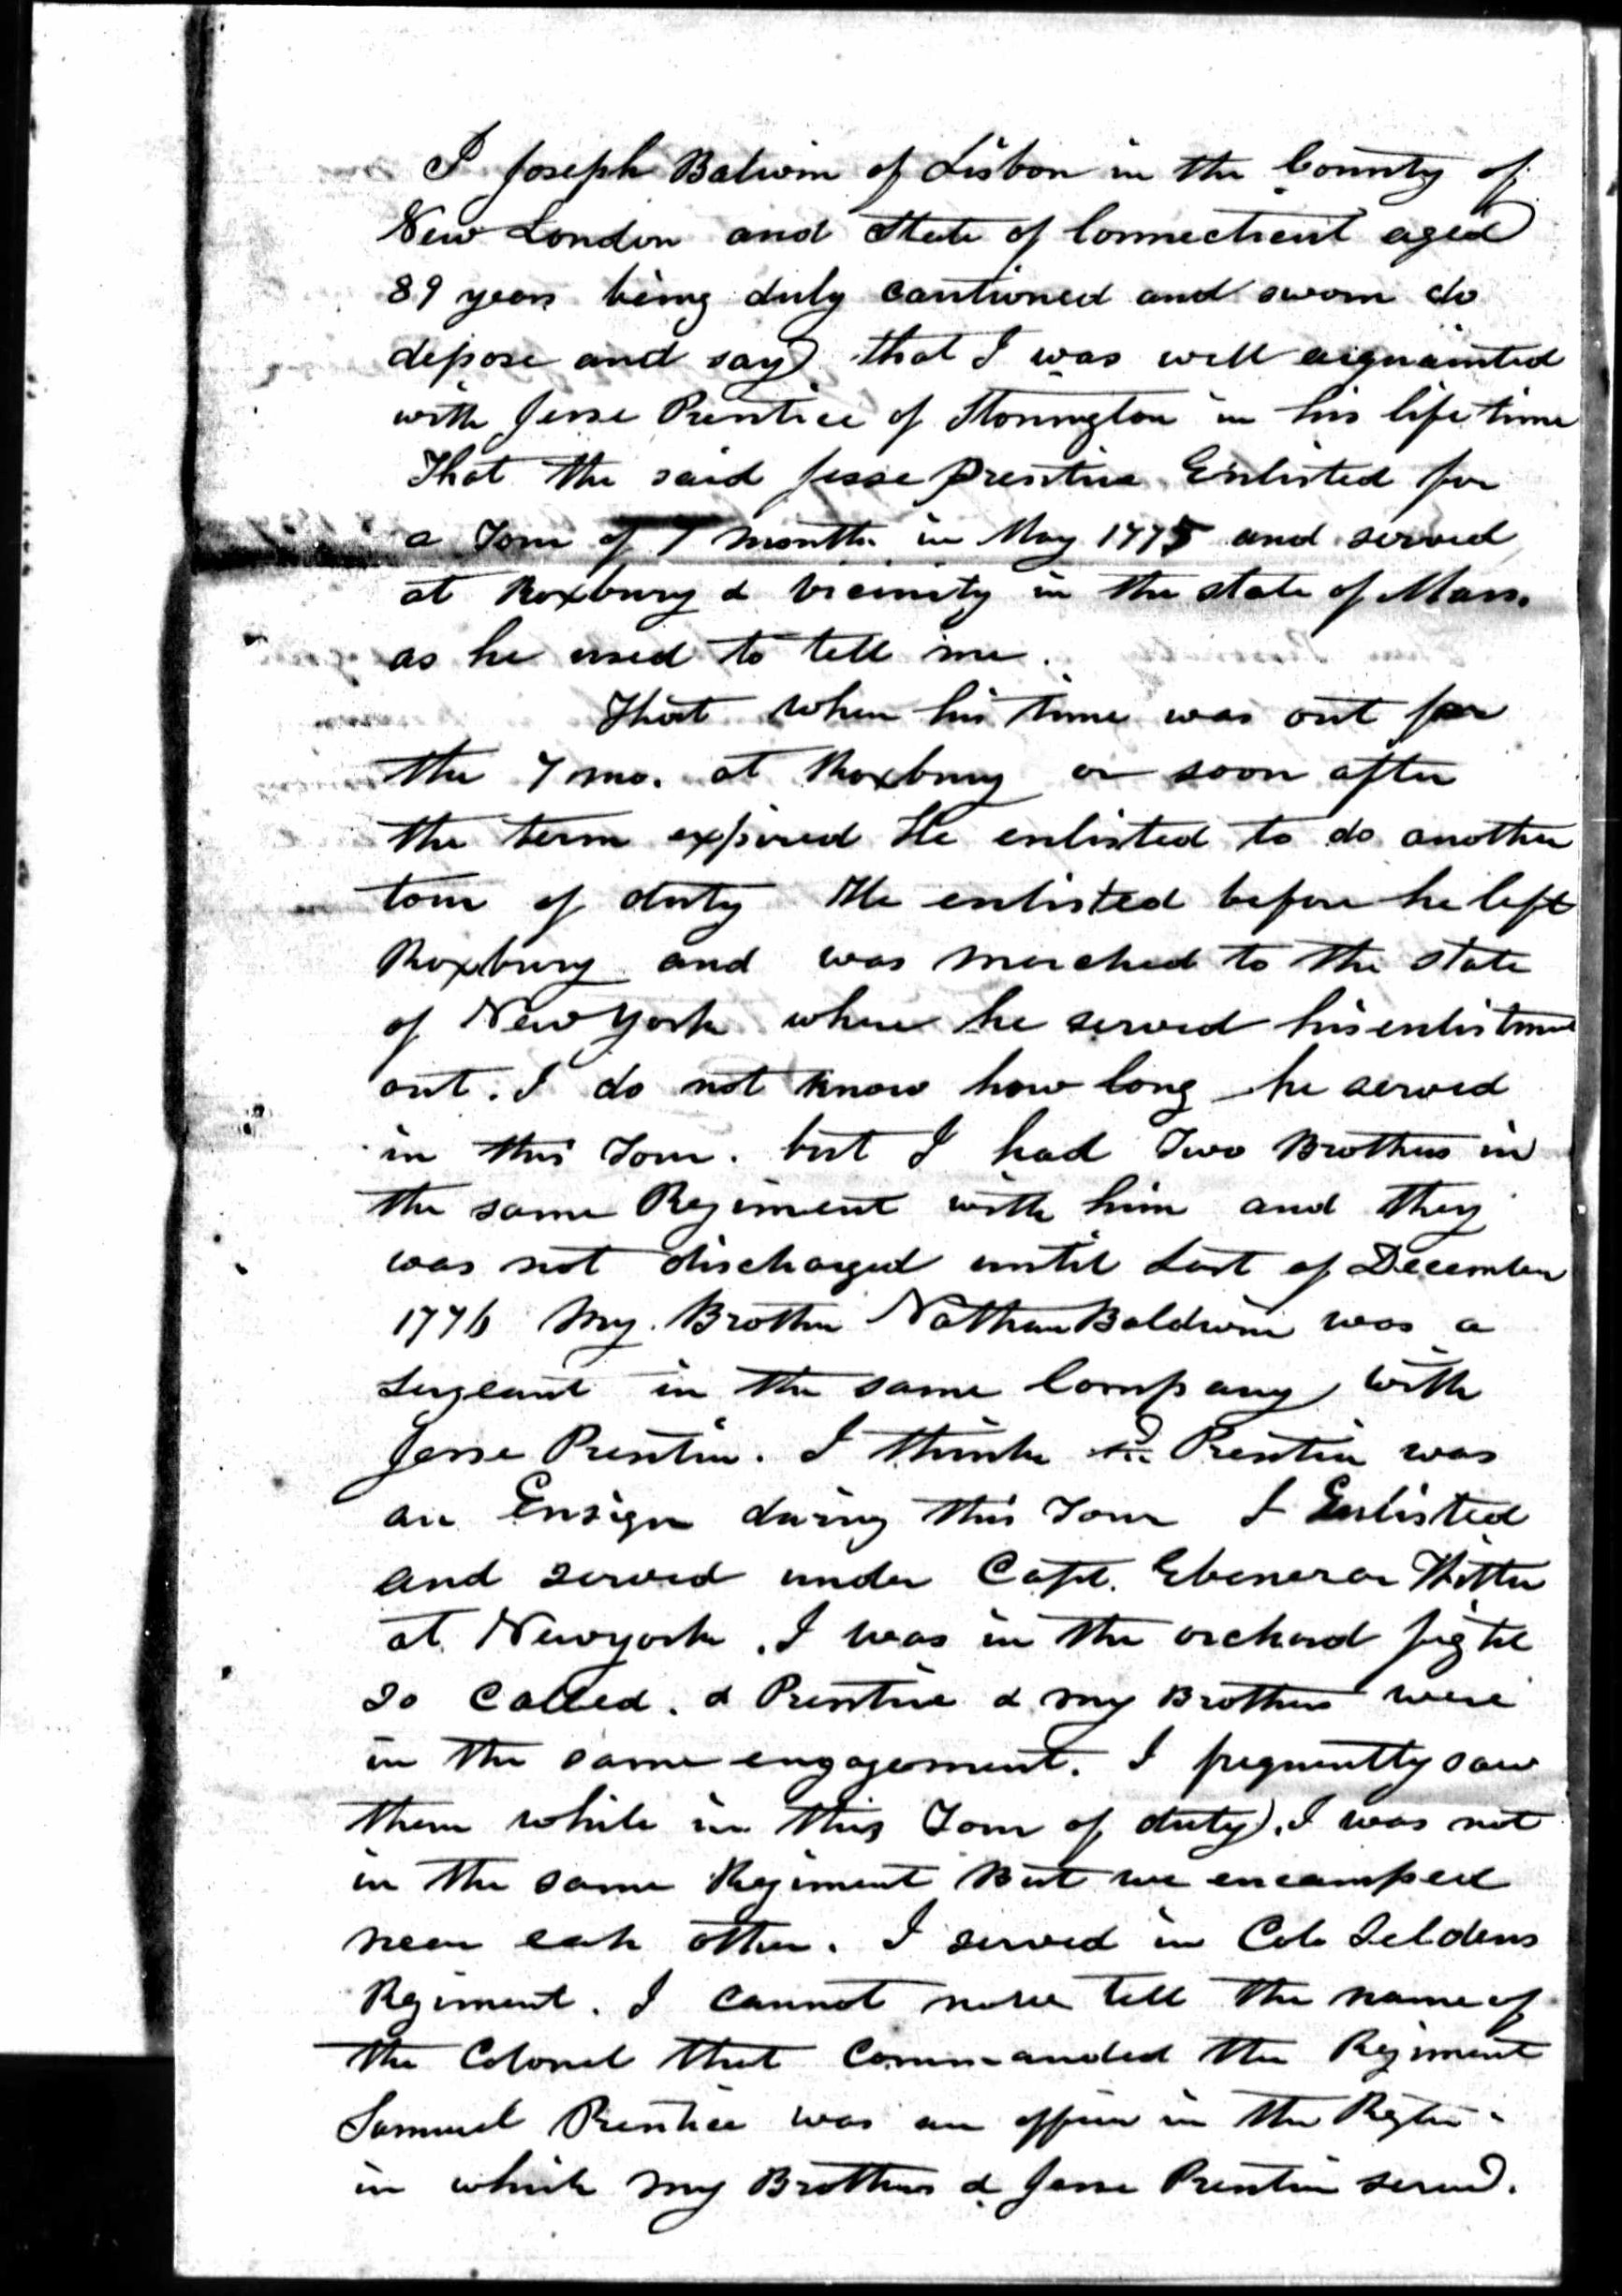 I Joseph Balwin of Lisbon in the County of
New London and State of Connecticut aged
89 years being duly cautioned and sworn do
depose and say that I was well aiquainted
with Jesse Prentice of Stonington in his life time
That the said Jesse Prentice Enlisted for
a Tour of 7 month in May 1775 and served
at Roxbury & vicinity in the state of Mass.
as he used to tell me.
That when his time was out for
the 7 mo. at Roxbury or soon after
the term expired He enlisted to do another
tour of duty He enlisted before he left
Roxbury and was marched to the state
of New York where he served his enlistment
out. I do not know how long he served
in this Tour. but I had Two Brothers in
the same Regiment with him and they
was not discharged until Last of December
1776 My Brother Nathan Baldwin was a
Sergeant in the same Company with
Jesse Prentice. I think sd Prentice was
an Ensign during this Tour I Enlisted
and served under Capt. Ebenezer Witter
at Newyork. I was in the orchard fight
so called. & Prentice & my Brothers were
in the same engagement. I frequently saw
them while in this Tour of duty. I was not
in the same Regiment But we encamped
near each other. I served in Col. Seldens
Regiment. I cannot now tell the name of
the Colonel that Commanded the Regiment
Samuel Prentice was an officer in the
in which my Brothers & Jesse Prentice served.